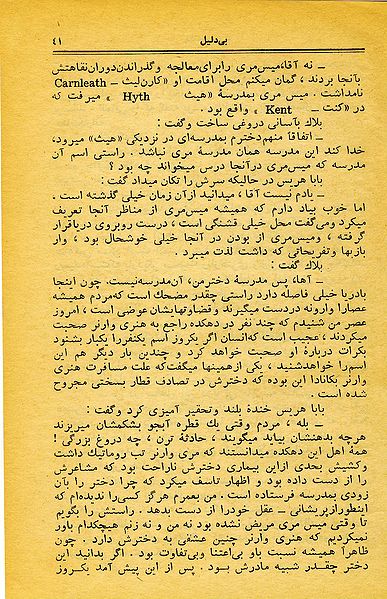 بی‌دلیل ۴۱
ـ نه آقا، میس مری را برای معالجه و گذراندن دوران نقاهتش
بآنجا بردند ، گمان میکنم محل اقامت او «کارن‌لیث ـ Carnleath
نام داشت . میس مری بمدرسهٔ «هیث ـ Hyth » میرفت که
در «کنت ـ Kent » واقع بود .
بلاک بآسانی دروغی ساخت و گفت :
ـ اتفاقا منهم دخترم بمدرسه‌ای در نزدیکی «هیث» میرود،
خدا کند این مدرسه همان مدرسهٔ مری نباشد . راستی اسم آن
مدرسه که میس‌مری در آنجا درس میخواند چه بود ؟
بابا هریس در حالیکه سرش را تکان میداد گفت :
ـ یادم نیست آقا ، میدانید از آن زمان خیلی گذشته است .
اما خوب بیاد دارم که همیشه میس‌مری از مناظر آنجا تعریف
میکرد و می‌گفت محل خیلی قشنگی است ، درست روبروی دریا قرار
گرفته ، و میس‌مری از بودن در آنجا خیلی خوشحال بود ، و از
بازیها و تفریحاتی که داشت لذت میبرد .
بلاک گفت :
ـ آها، پس مدرسهٔ دختر من، آن مدرسه نیست. چون اینجا
با دریا خیلی فاصله دارد راستی چقدر مضحک است که مردم همیشه
عصا را وارونه در دست میگیرند و قضاوتهایشان عوضی است ، امروز
عصر من شنیدم که چند نفر در دهکده راجع به هنری وارنر صحبت
میکردند ، عجیب است که انسان اگر یکروز اسم یکنفر را یکبار بشنود
بکرات دربارهٔ او صحبت خواهد کرد و چندین بار دیگر هم این
اسم را خواهد شنید ، یکی از همینها میگفت که علت مسافرت هنری
وارنر بکانادا این بوده که دخترش در تصادف قطار بسختی مجروح
شده است .
بابا هریس خندهٔ بلند و تحقیر آمیزی کرد و گفت :
ـ بله ، مردم وقتی یک قطره آبجو بشکمشان میریزند
هرچه بدهنشان بیاید میگویند ، حادثهٔ ترن ، چه دروغ بزرگی !
همهٔ اهل این دهکده میدانستند که مری وارنر تب روماتیک داشت
و کشیش بحدی از این بیماری دخترش ناراحت بود که مشاعرش
را از دست داده بود و اظهار تاسف میکرد که چرا دختر را بآن
زودی بمدرسه فرستاده است . من بعمرم هرگز کسی را ندیده‌ام که
اینطور از پریشانی ـ عقل خود را از دست بدهد . راستش را بگویم
تا وقتی میس مری مریض نشده بود نه من و نه زنم هیچکدام باور
نمیکردیم که هنری وارنر چنین عشقی به دخترش دارد . چون
ظاهراً همیشه نسبت باو بی‌اعتنا و بی‌تفاوت بود . اگر بدانید این
دختر چقدر شبیه مادرش بود . پس از این پیش آمد یکروز